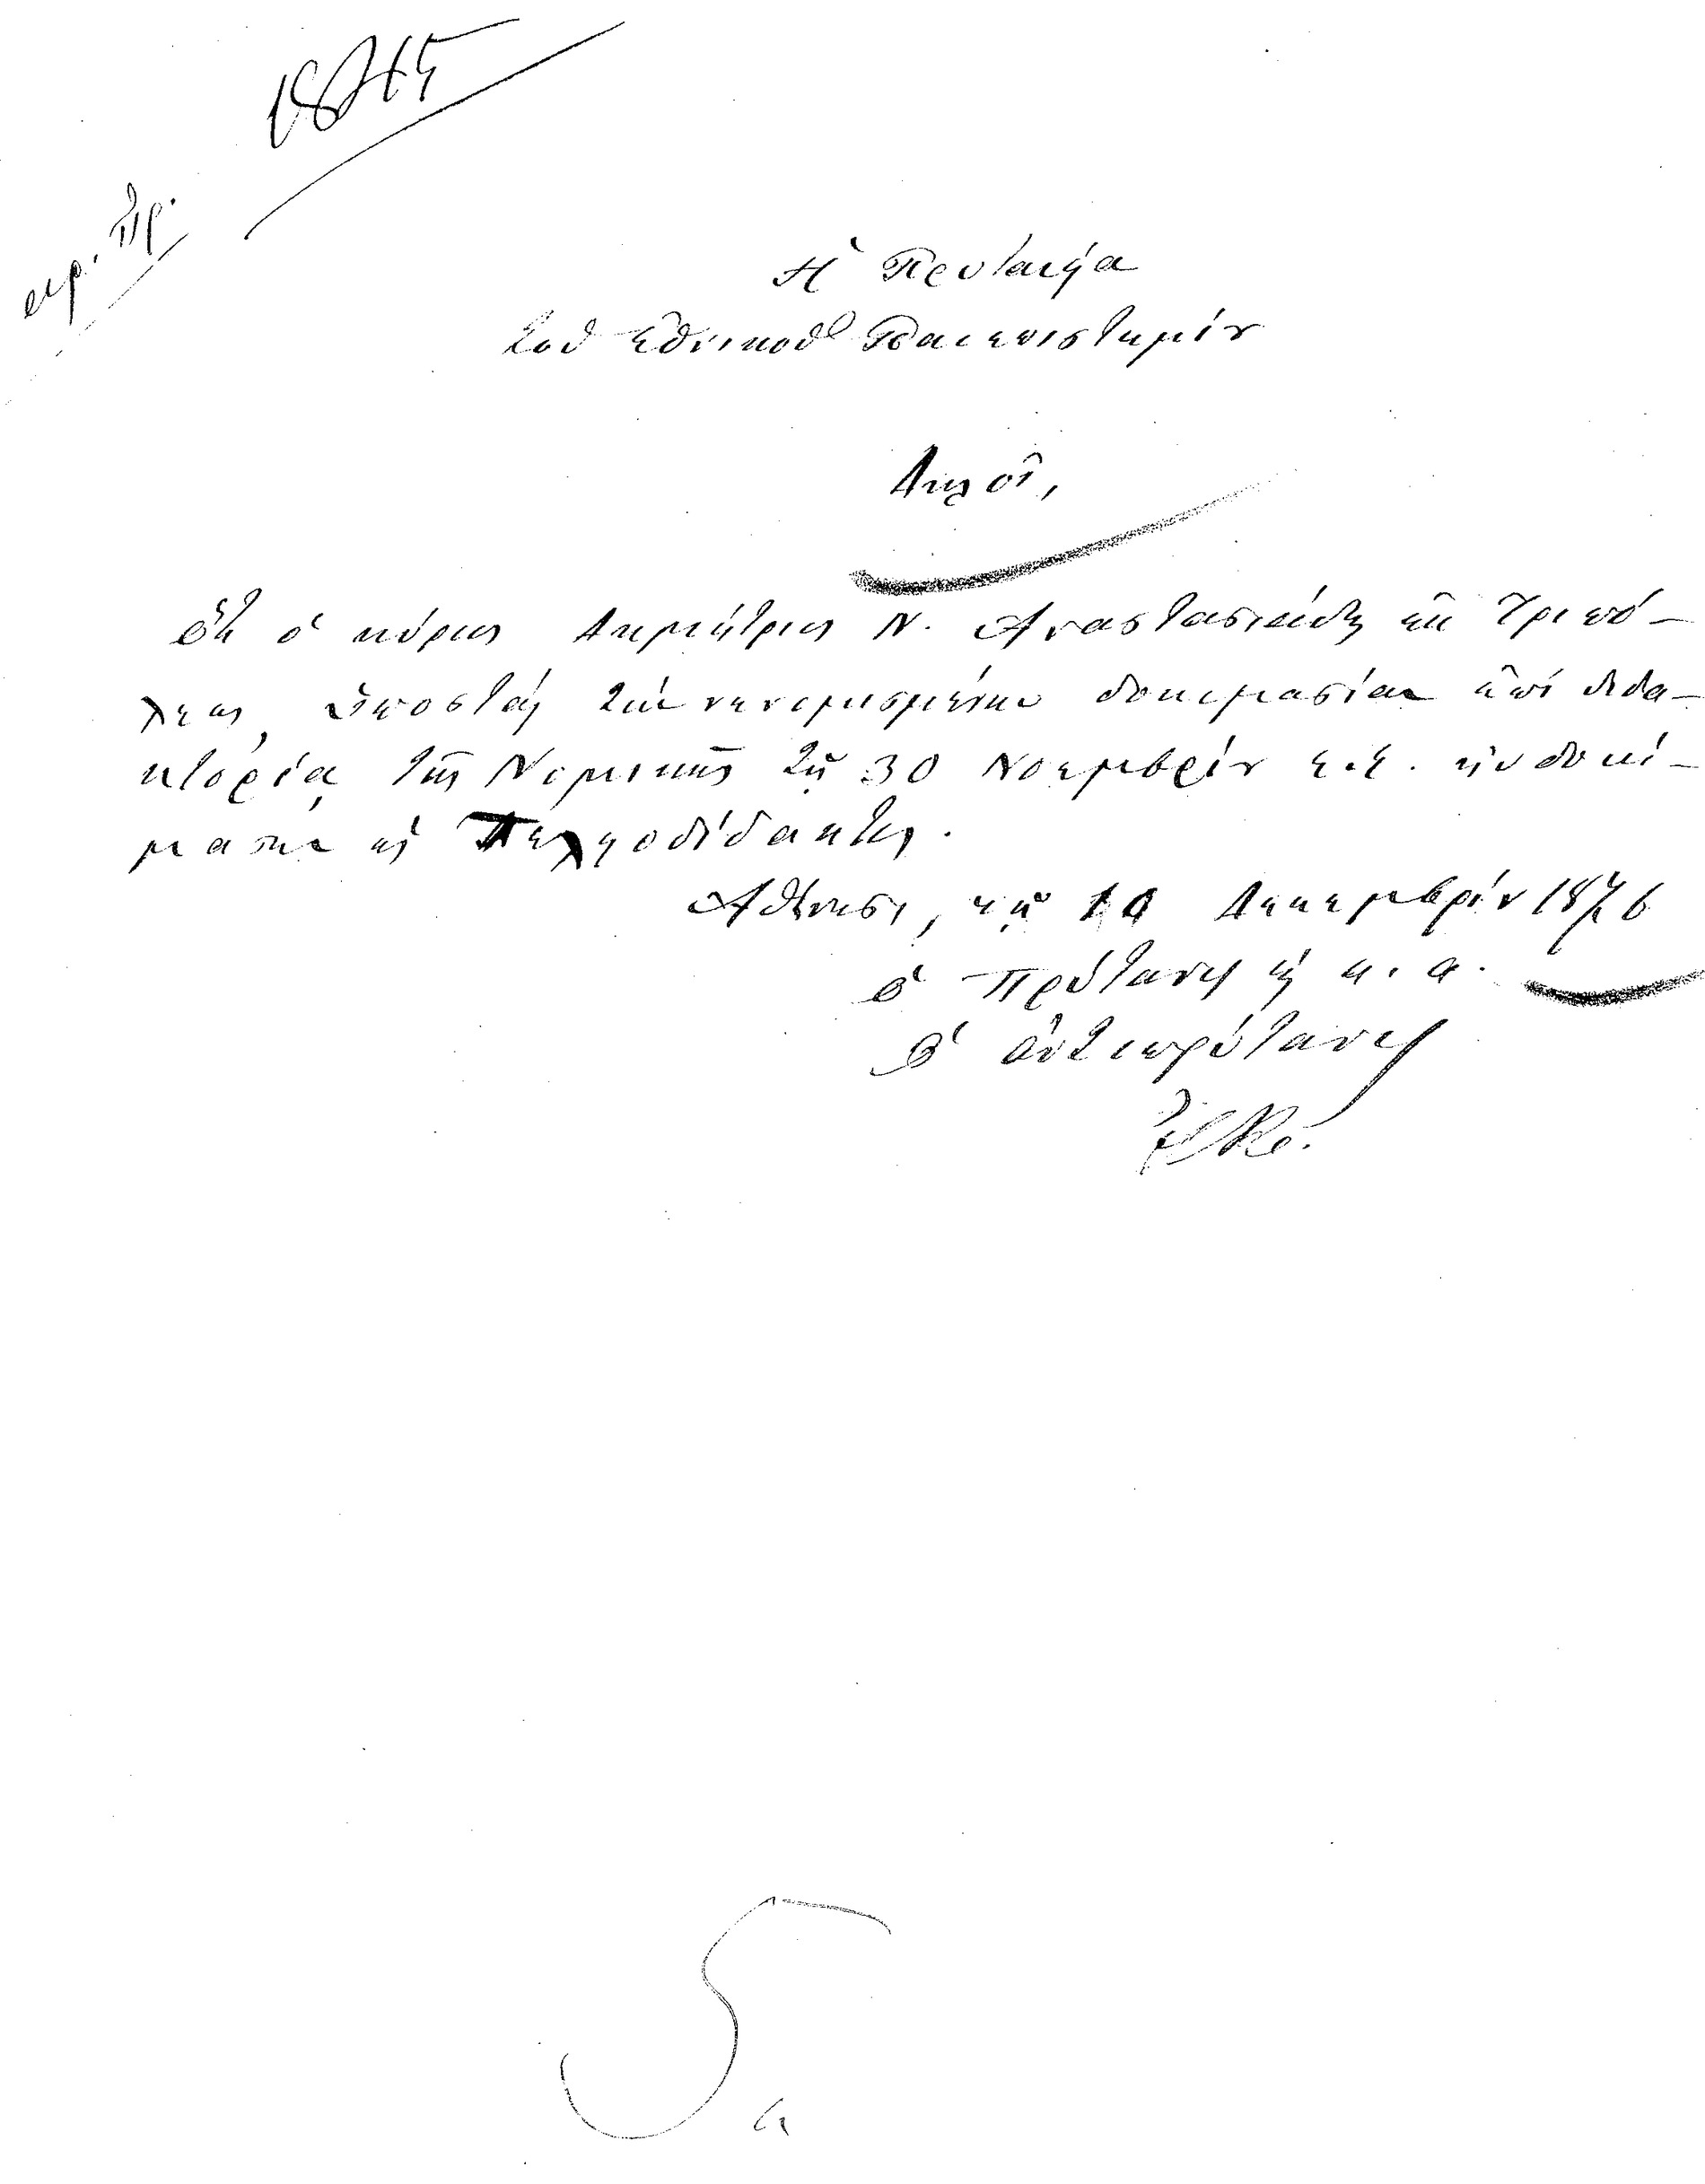 αρ. Πρ.
Ἡ Πρυτανεία
τοῦ Ἐθνικοῦ Πανεπιστημίου
Δηλοῖ,
ὅτι ὁ κύριος Δημήτριος Ν. Ἀναστασιάδης ἐκ Τριπό-
λεως, ὑποστὰς τὴν νενομισμένην δοκιμασίαν ἐπὶ διδα-
κτορίᾳ τῆς Νομικῆς τῇ 30 Νοεμβρίου ἐ.ἔ. ηὐδοκί-
μασεν ὡς Τελειοδίδακτος.
Ἀθήνησι, τῇ 10 Δεκεμβρίου 1876
ὁ Πρύτανις καὶ κ. α.
ὁ ἀντιπρύτανις